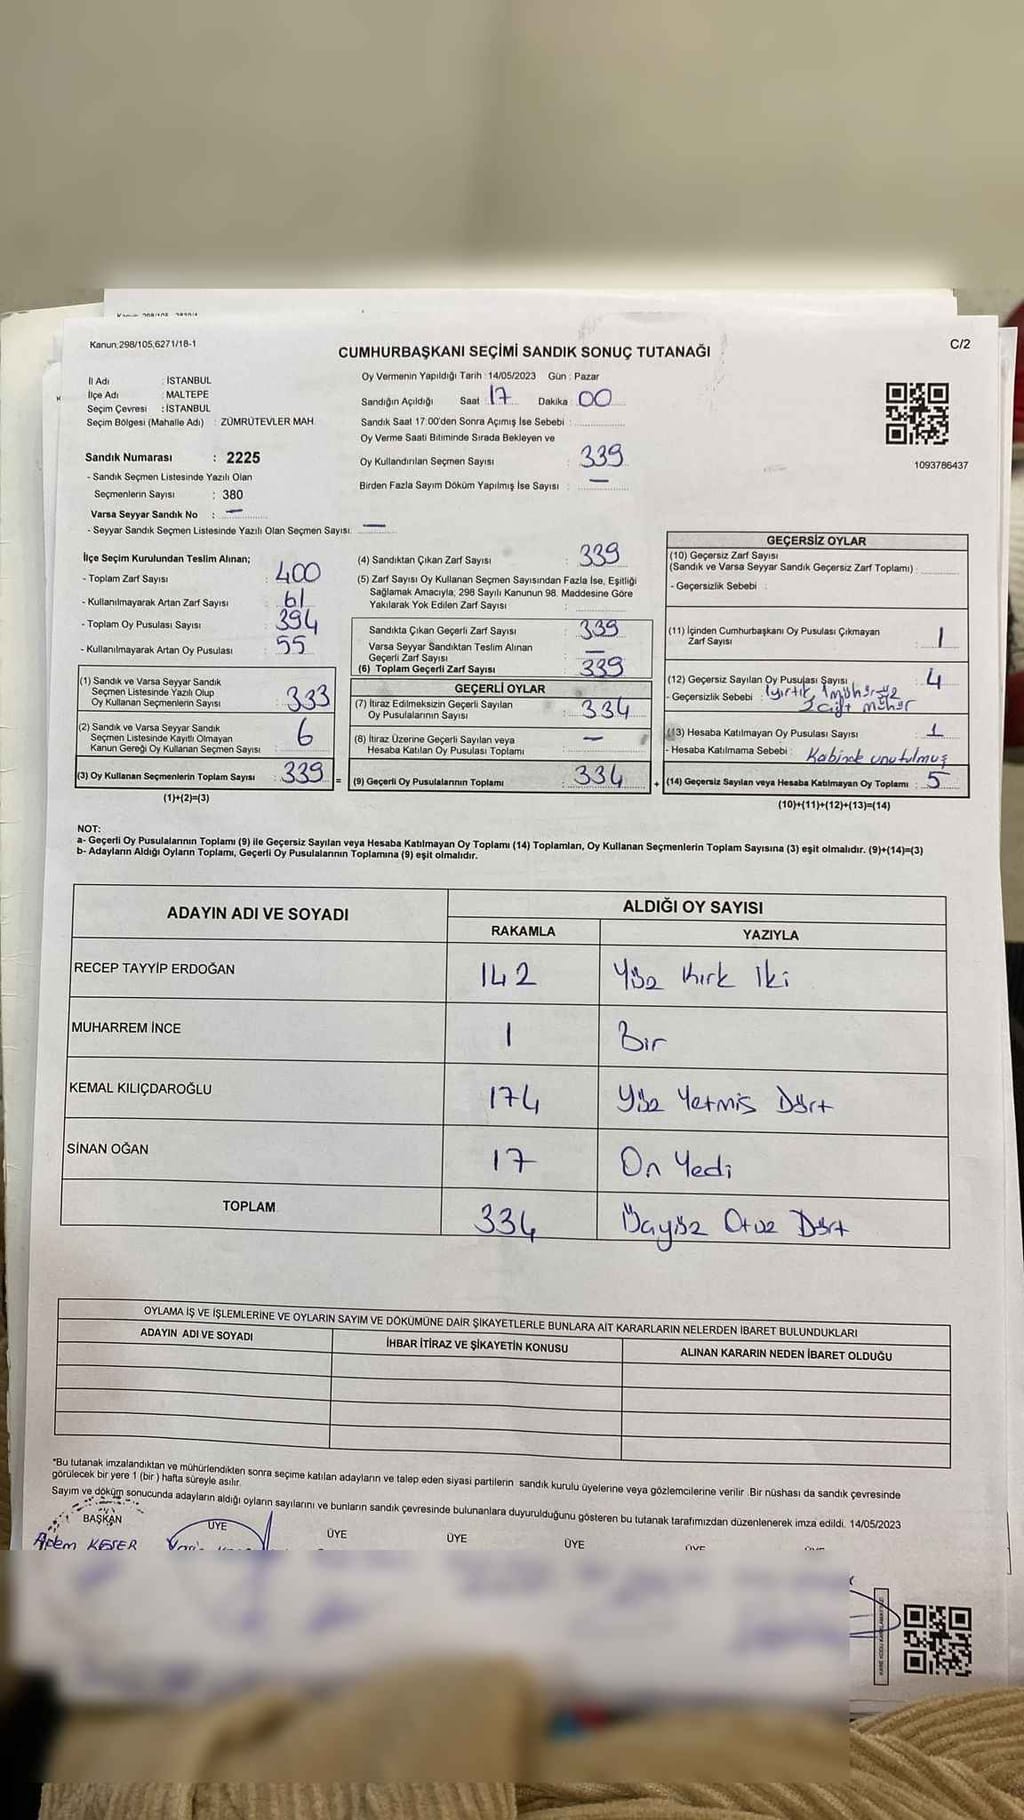 Kanun;298/105,6271/18-1
C/2
CUMHURBAŞKANI SEÇİMİ SANDIK SONUÇ TUTANAĞI
İl Adı : İSTANBUL
İlçe Adı : MALTEPE
Seçim Çevresi : İSTANBUL
Seçim Bölgesi (Mahalle Adı) : ZÜMRÜTEVLER MAH
Sandık Numarası : 2225
- Sandık Seçmen Listesinde Yazılı Olan
Seçmenlerin Sayısı : 380
Varsa Seyyar Sandık No : —
- Seyyar Sandık Seçmen Listesinde Yazılı Olan Seçmen Sayısı: —
Oy Vermenin Yapıldığı Tarih : 14/05/2023 Gün : Pazar
Sandığın Açıldığı Saat : 17 Dakika : 00
Sandık Saat 17:00'den Sonra Açımış İse Sebebi :
Oy Verme Saati Bitiminde Sırada Bekleyen ve
Oy Kullandırılan Seçmen Sayısı : 339
Birden Fazla Sayım Döküm Yapılmış İse Sayısı : —
1093786437
İlçe Seçim Kurulundan Teslim Alınan;
- Toplam Zarf Sayısı : 400
- Kullanılmayarak Artan Zarf Sayısı : 61
- Toplam Oy Pusulası Sayısı : 394
- Kullanılmayarak Artan Oy Pusulası : 55
(1) Sandık ve Varsa Seyyar Sandık
Seçmen Listesinde Yazılı Olup
Oy Kullanan Seçmenlerin Sayısı : 333
(2) Sandık ve Varsa Seyyar Sandık
Seçmen Listesinde Kayıtlı Olmayan
Kanun Gereği Oy Kullanan Seçmen Sayısı : 6
(3) Oy Kullanan Seçmenlerin Toplam Sayısı : 339 =
(1)+(2)=(3)
(4) Sandıktan Çıkan Zarf Sayısı : 339
(5) Zarf Sayısı Oy Kullanan Seçmen Sayısından Fazla İse, Eşitliği
Sağlamak Amacıyla, 298 Sayılı Kanunun 98. Maddesine Göre
Yakılarak Yok Edilen Zarf Sayısı :
Sandıkta Çıkan Geçerli Zarf Sayısı : 339
Varsa Seyyar Sandıktan Teslim Alınan
Geçerli Zarf Sayısı : —
(6) Toplam Geçerli Zarf Sayısı : 339
GEÇERLİ OYLAR
(7) İtiraz Edilmeksizin Geçerli Sayılan
Oy Pusulalarının Sayısı : 334
(8) İtiraz Üzerine Geçerli Sayılan veya
Hesaba Katılan Oy Pusulası Toplamı : —
(9) Geçerli Oy Pusulalarının Toplamı : 334 +
GEÇERSİZ OYLAR
(10) Geçersiz Zarf Sayısı
(Sandık ve Varsa Seyyar Sandık Geçersiz Zarf Toplamı) :
- Geçersizlik Sebebi :
(11) İçinden Cumhurbaşkanı Oy Pusulası Çıkmayan
Zarf Sayısı : 1
(12) Geçersiz Sayılan Oy Pusulası Sayısı : 4
- Geçersizlik Sebebi : 1yırtık, 1mühürsüz
2 çift mühür
(13) Hesaba Katılmayan Oy Pusulası Sayısı : 1
- Hesaba Katılmama Sebebi : Kabinde unutulmuş
(14) Geçersiz Sayılan veya Hesaba Katılmayan Oy Toplamı : 5
(10)+(11)+(12)+(13)=(14)
NOT:
a- Geçerli Oy Pusulalarının Toplamı (9) ile Geçersiz Sayılan veya Hesaba Katılmayan Oy Toplamı (14) Toplamları, Oy Kullanan Seçmenlerin Toplam Sayısına (3) eşit olmalıdır. (9)+(14)=(3)
b- Adayların Aldığı Oyların Toplamı, Geçerli Oy Pusulalarının Toplamına (9) eşit olmalıdır.
ADAYIN ADI VE SOYADI
ALDIĞI OY SAYISI
RAKAMLA YAZIYLA
RECEP TAYYİP ERDOĞAN 142 Yüz Kırk İki
MUHARREM İNCE 1 Bir
KEMAL KILIÇDAROĞLU 174 Yüz Yetmiş Dört
SİNAN OĞAN 17 On Yedi
TOPLAM 334 Üçyüz Otuz Dört
OYLAMA İŞ VE İŞLEMLERİNE VE OYLARIN SAYIM VE DÖKÜMÜNE DAİR ŞİKAYETLERLE BUNLARA AİT KARARLARIN NELERDEN İBARET BULUNDUKLARI
ADAYIN ADI VE SOYADI İHBAR İTİRAZ VE ŞİKAYETİN KONUSU ALINAN KARARIN NEDEN İBARET OLDUĞU
*Bu tutanak imzalandıktan ve mühürlendikten sonra seçime katılan adayların ve talep eden siyasi partilerin sandık kurulu üyelerine veya gözlemcilerine verilir .Bir nüshası da sandık çevresinde
görülecek bir yere 1 (bir ) hafta süreyle asılır.
Sayım ve döküm sonucunda adayların aldığı oyların sayılarını ve bunların sandık çevresinde bulunanlara duyurulduğunu gösteren bu tutanak tarafımızdan düzenlenerek imza edildi. 14/05/2023
BAŞKAN ÜYE ÜYE ÜYE ÜYE ÜYE ÜYE
Adem KESER